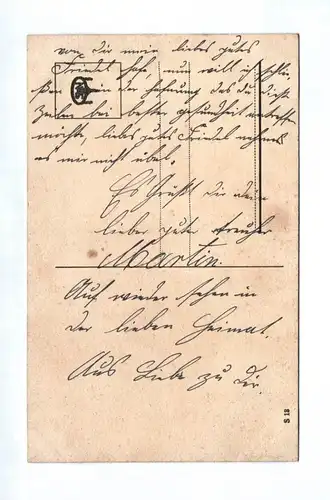 von dir mein liebes gutes
Friedel hof, nun will ich schlie
ßen in der hofnung das du diese
Zeilen bei bester gesundheit antreffen
möchte, liebes gutes Friedel nehme
es mir nicht übel.
Es Grüßt dir dein
lieber guter treuher
Martin.
Auf wieder sehen in
der lieben Heimat.
Aus Liebe zu Dir.
S 18